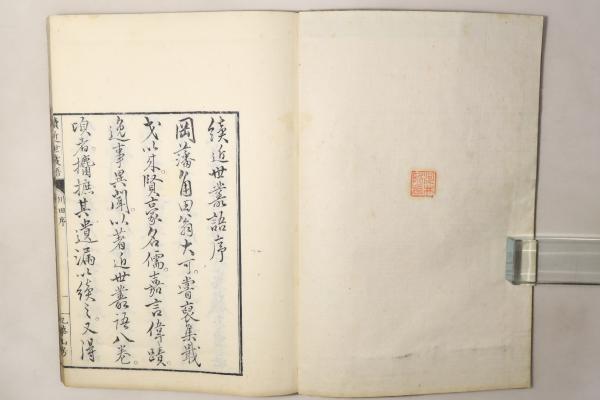 續近世叢語序
岡藩角田翁大可。嘗裒集戢
戈以來。賢豪名儒。嘉言偉蹟
逸事異聞。以著近世叢語八卷。
頃者攟摭其遺漏以續之。又得
續近世叢語
川田序
一